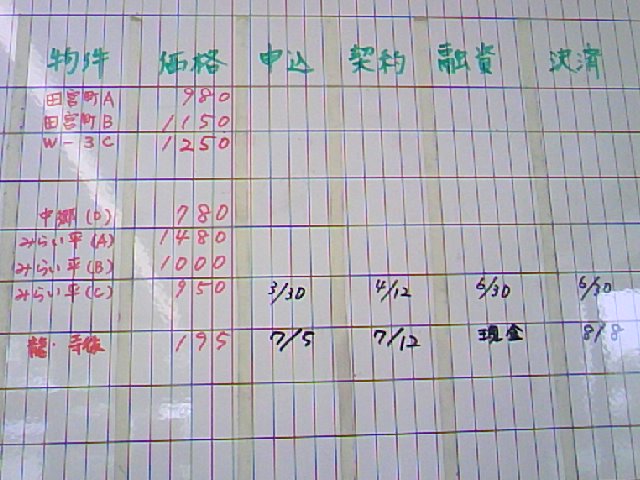 物件 価格 申込 契約 融資 決済
田宮町A 980
田宮町B 1150
W-3C 1250
中郷(D) 780
みらい平(A) 1480
みらい平(B) 1000
みらい平(C) 950 3/30 4/12 6/30 6/30
195 7/5 7/12 現金 8/8